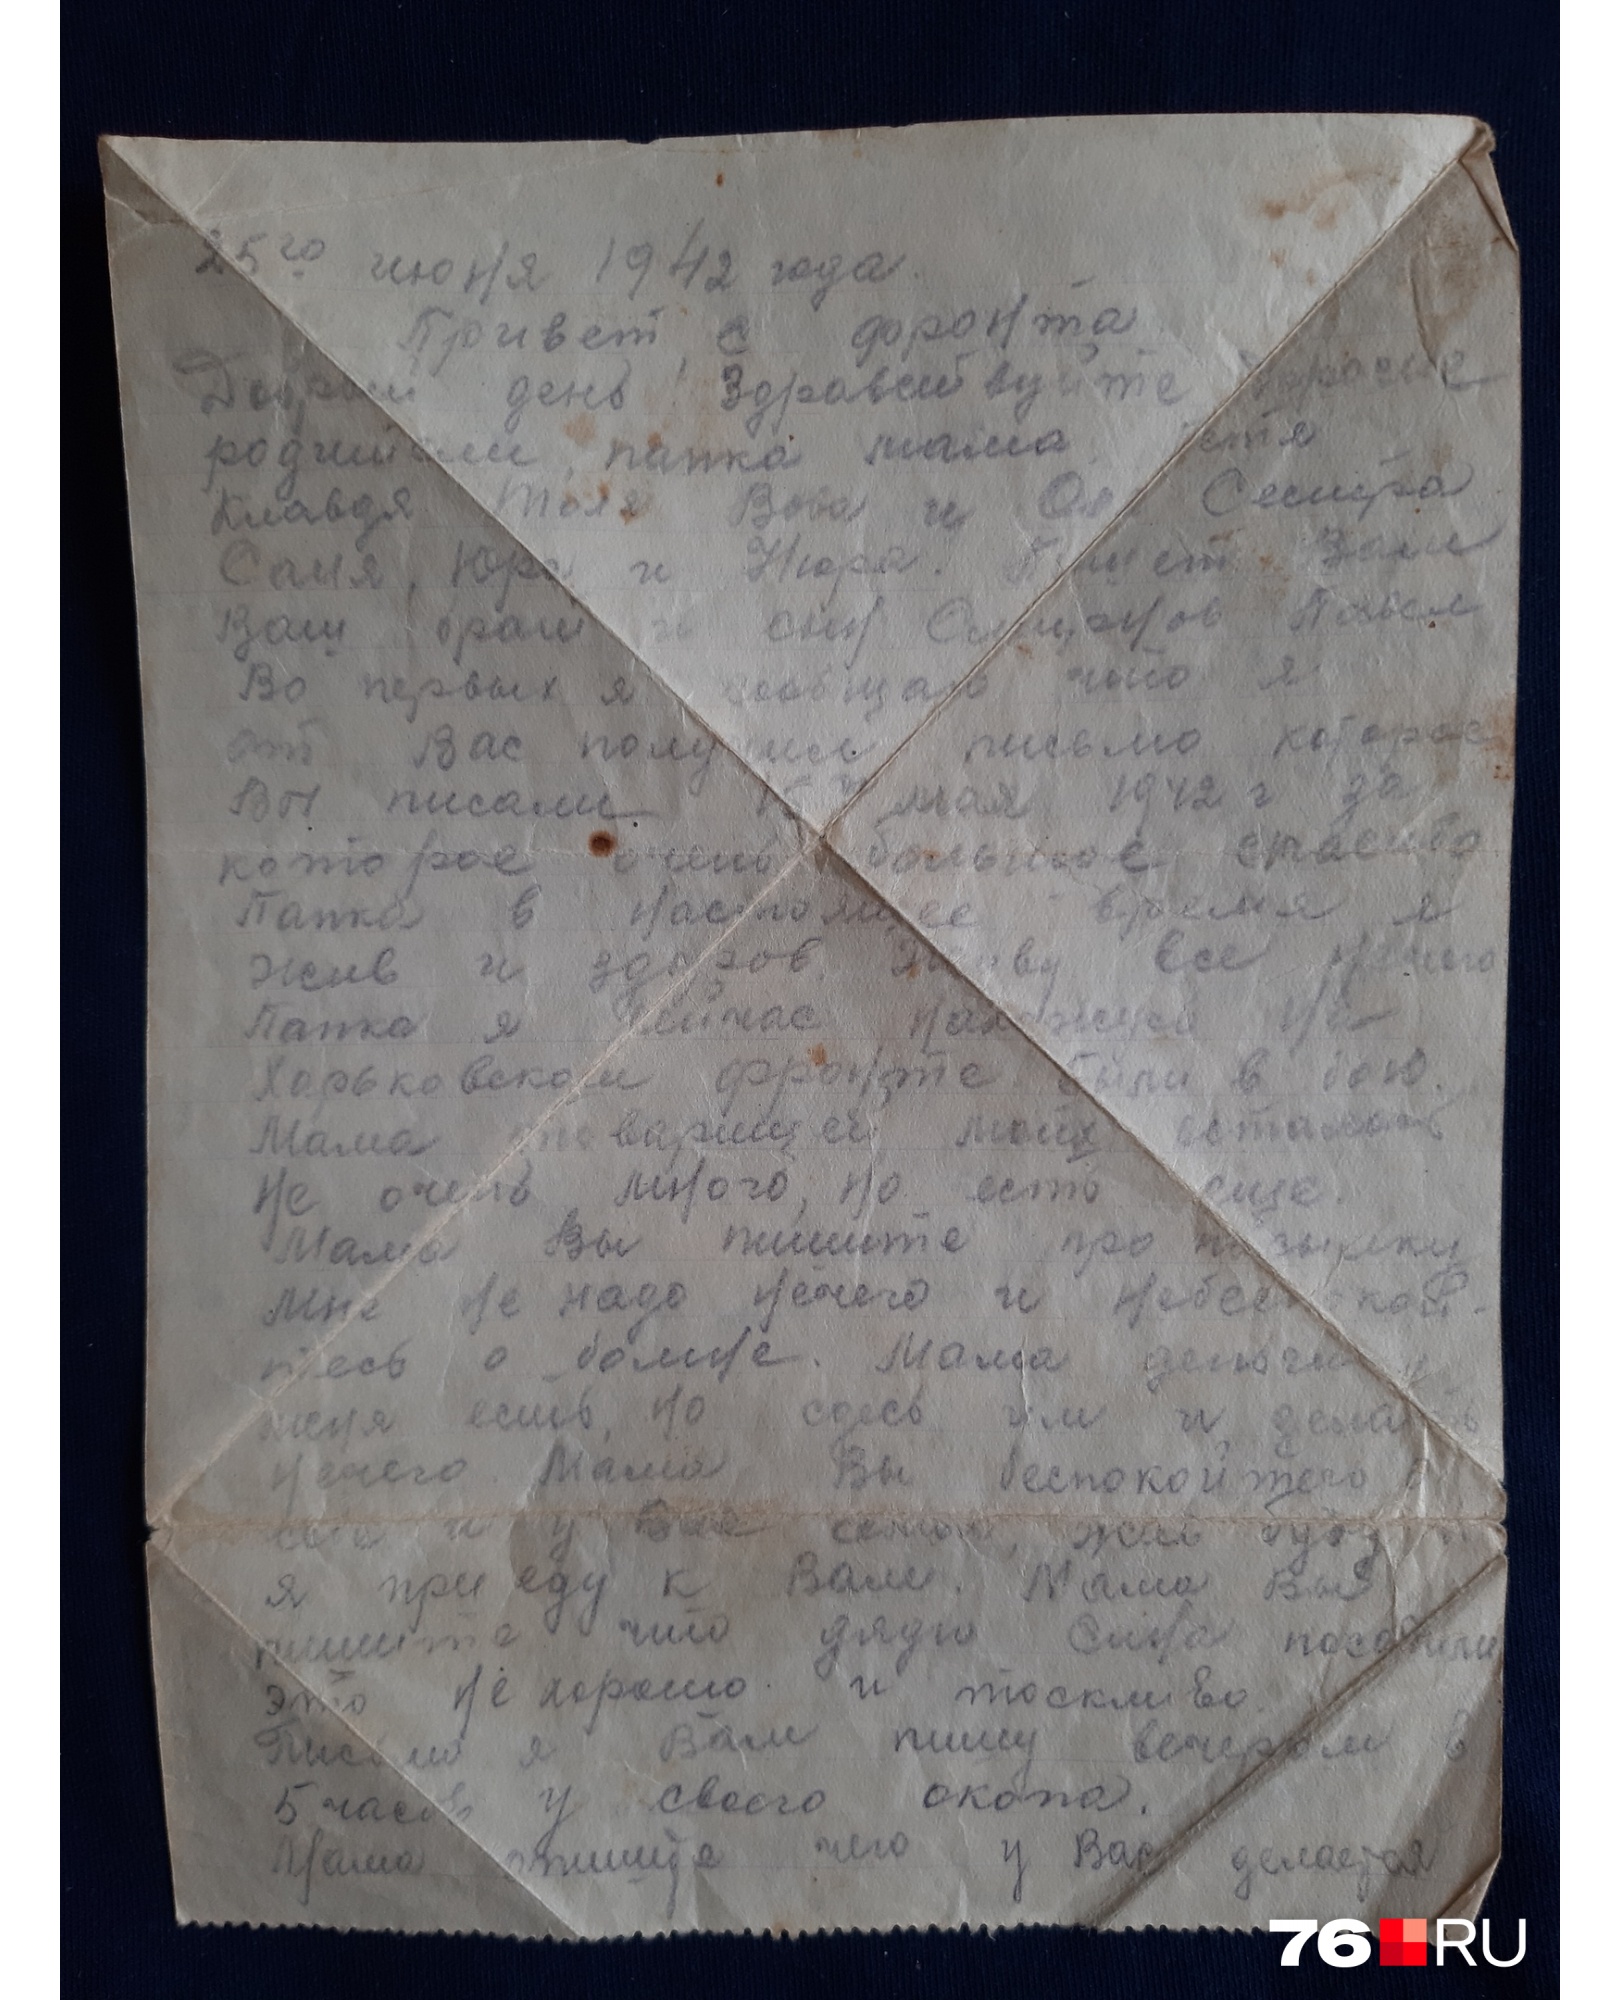 25го июня 1942 года.
Привет с форонта
Добрый день! Здравствуйте дорогие
родители, папка мама,
Клавдя Толя Вова и Оля Сестра
Саня, Юра и Нюра. Пишет Вам
Ваш брат и сын Павел
Во первых я сообщаю что я
от Вас получил письмо которое
Вы писали мая 1942 г за
которое очень большое спасибо
Папка в настоящее время я
жив и здоров. Живу все нечего
Папка я сейчас нахожусь на
Харьковском фронте были в бою.
Мама товарищей моих осталось
не очень много, но есть еще.
Мама Вы пишите про посылку
мне не надо нечего и небеспокой-
тесь о болше. Мама деньги у
меня есть, но сдесь им и делать
нечего. Мама Вы беспокойтесо о
себе и у Вас семьи, жив буду
я приеду к Вам. Мама Вы
пишите что дядю похоронили
это не хорошо и тоскливо.
Письмо я Вам пишу вечером в
5 часов у своего окопа.
Мама пишите чего у Вас делается
76 RU